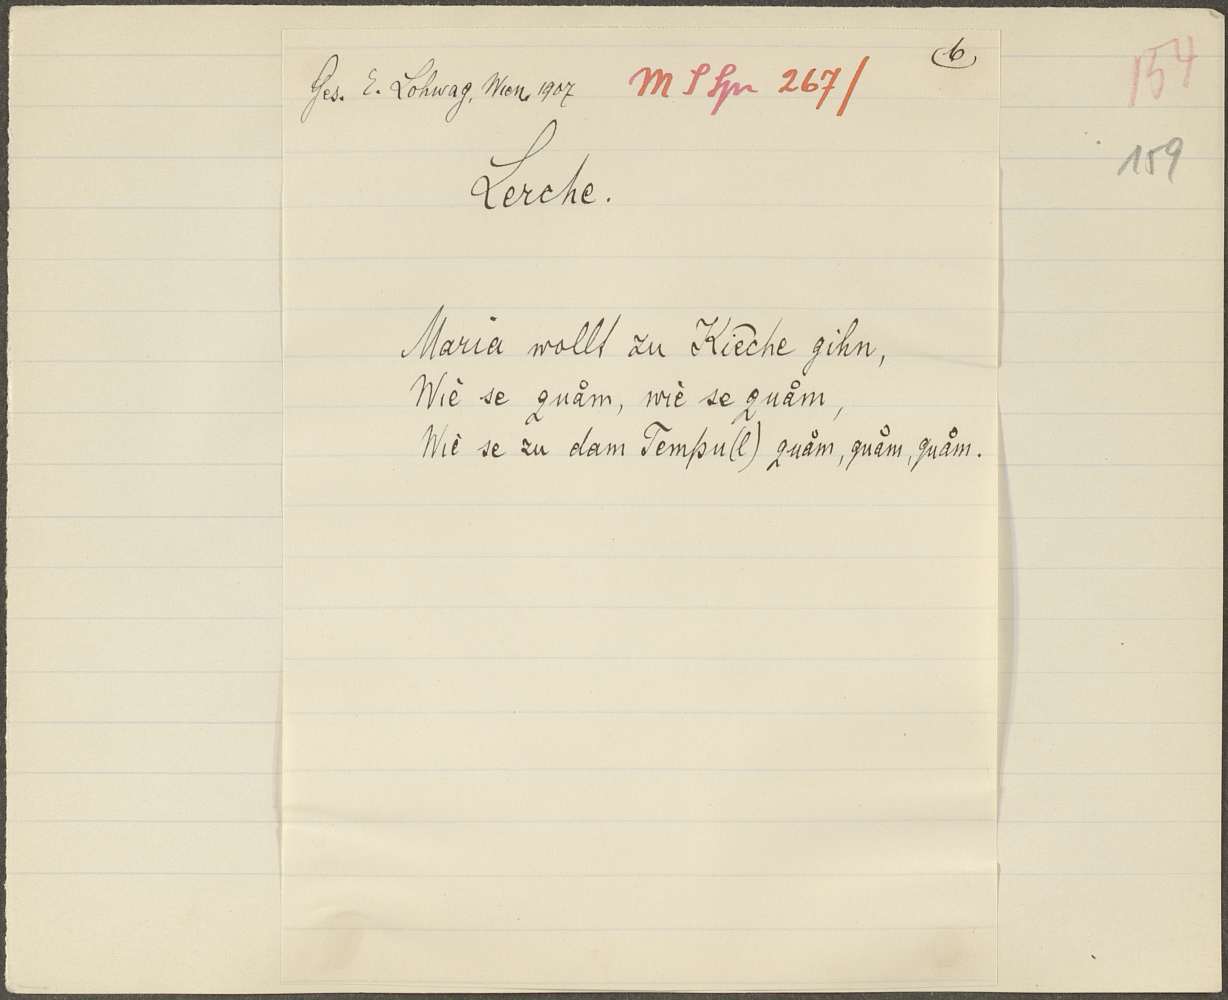 6
Ges. E. Lohwag, Wien, 1907 M S Spr 267/
154
159
Lerche.
Maria wollt zu Kieche gihn,
Wiè se quåm, wiè se quåm,
Wiè se zu dam Tempu(l) quåm, quåm, quåm.